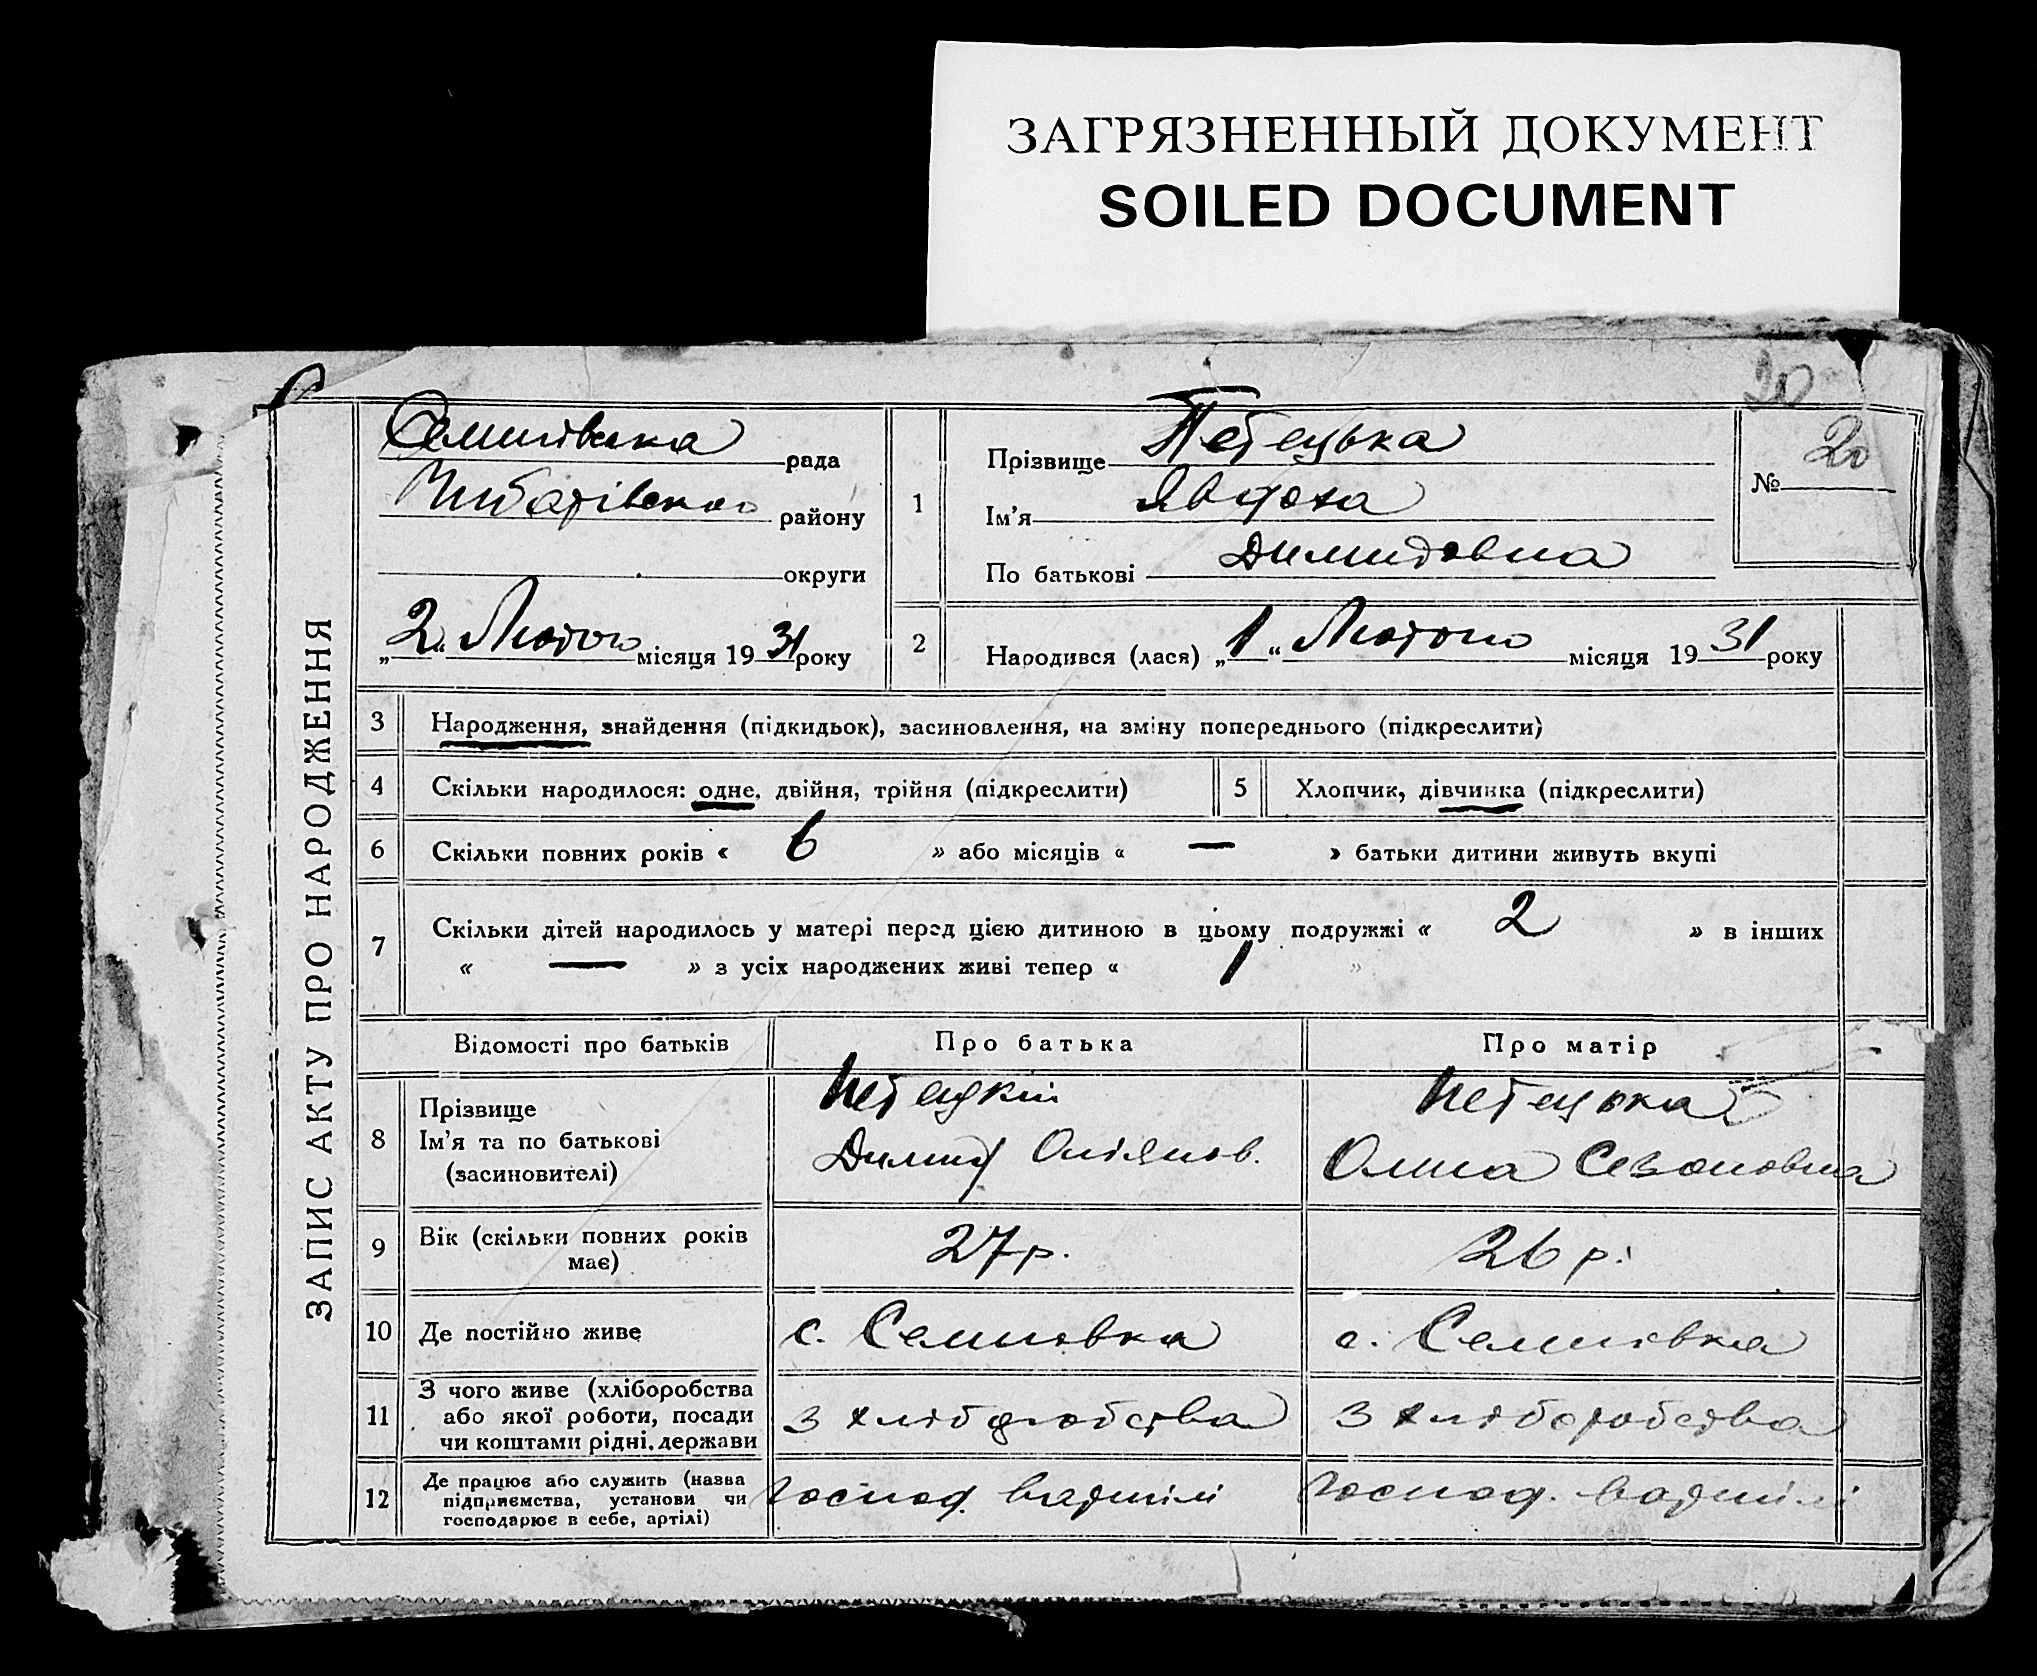 ЗАГРЯЗНЕННЫЙ ДОКУМЕНТ
SOILED DOCUMENT
20
ЗАПИС АКТУ ПРО НАРОДЖЕННЯ
Семиговська рада
району
округи
„2“ Лютого місяця 1931 року
1
Прізвище Петецька
Ім'я Явдоха
По батькові Димидовна
№ 20
2
Народився (лася) „1“ Лютого місяця 1931 року
3 Народження, знайдення (підкидьок), засиновлення, на зміну попереднього (підкреслити)
4 Скільки народилося: одне, двійня, трійня (підкреслити)
5 Хлопчик, дівчинка (підкреслити)
6 Скільки повних років « 6 » або місяців « — » батьки дитини живуть вкупі
7 Скільки дітей народилось у матері перед цією дитиною в цьому подружжі « 2 » в інших
« — » з усіх народжених живі тепер « 1 »
Відомості про батьків
Про батька
Про матір
8 Прізвище
Ім'я та по батькові
(засиновителі)
Петецкий
Димид
Петецька
Олина
9 Вік (скільки повних років
має)
27 р.
26 р.
10 Де постійно живе
с. Семиговка
с. Семиговка
11 З чого живе (хліборобства
або якої роботи, посади
чи коштами рідні, держави
З хліборобства
З хліборобства
12 Де працює або служить (назва
підприємства, установи чи
господарює в себе, артілі)
господ. в артілі
господ. в артілі